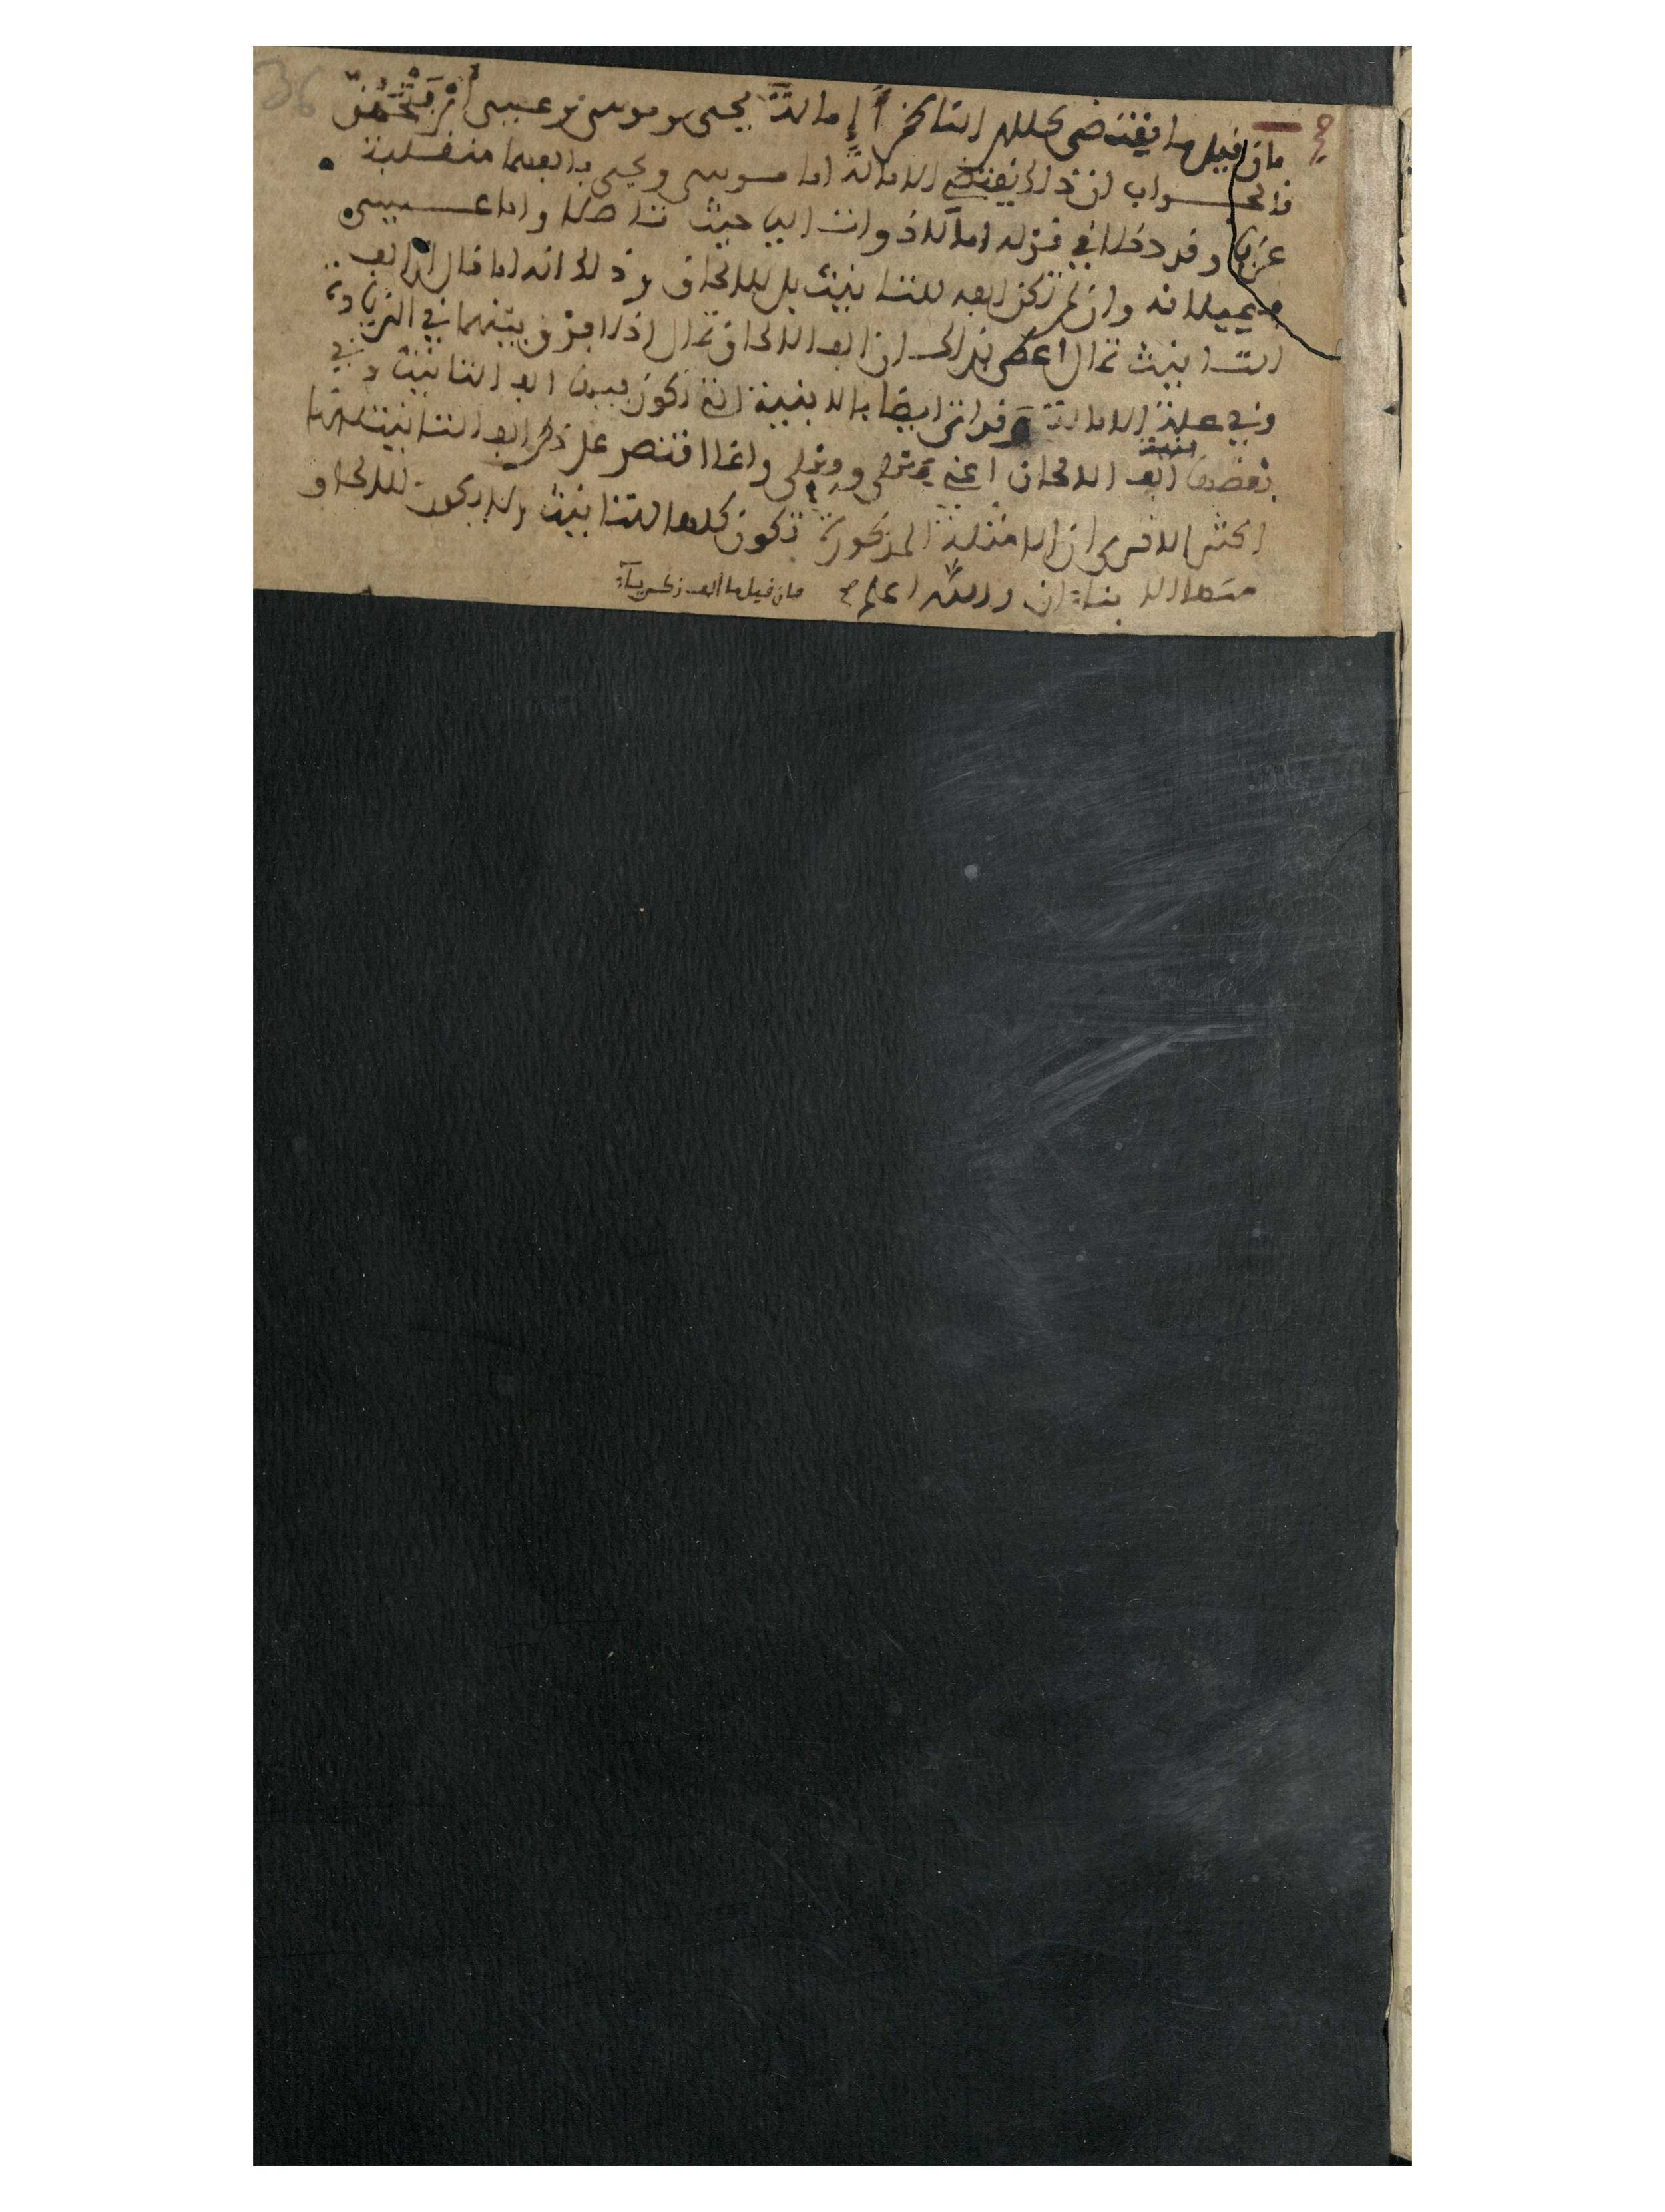 فان قيل ما يقتضى كلام الناظم إمالة يحيى وموسى وعيسى أم فتحهن
فالجواب ان ذلك يقتضي الامالة اما موسى ويحيى فالفهما منقلبة
عن يا وقد دخلا في قوله امالا ذوات اليا حيث تاصلا واما عيسى
فيميلانه وان لم تكن الفه للتانيث بل للالحاق وذلك انه لما قال ان الف
التانيث تمال اعطى بذلك ان الف الالحاق تمال اذ لا فرق بينهما في الزيادة
وفي علة الامالة وقد اتى ايضا بالابنية التي تكون فيها الف التانيث وفي
بعضها الف الالحاق اعني فعلى وفعلى وانما اقتصر على ذكر الف التانيث لانها
اكثر الا ترى ان الامثلة المذكورة تكون كلها للتانيث ولا يكون للالحاق
منها الا بناءان والله اعلم فان قيل ما الف زكرياء